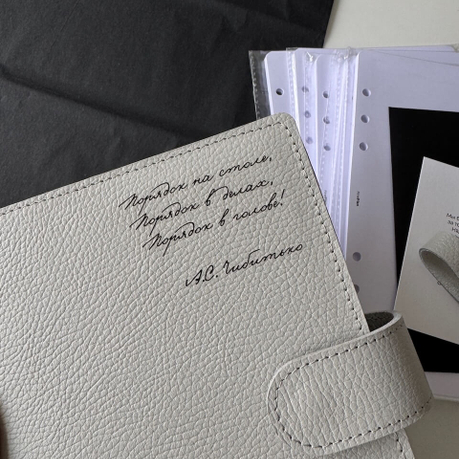 Порядок на столе,
Порядок в делах,
Порядок в голове!
А.С. Чибитько